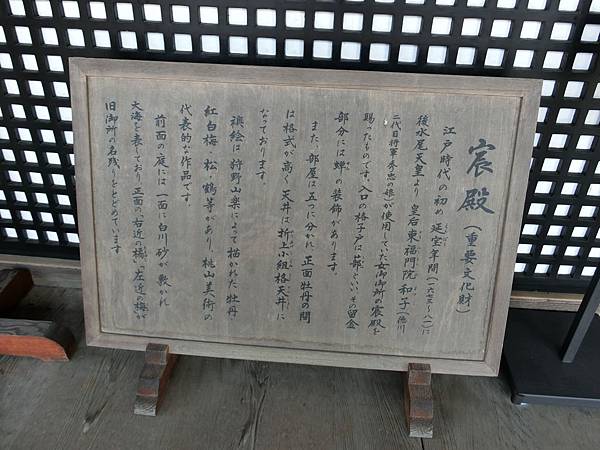 宸殿(重要文化財)
江戸時代の初め 延宝年間(一六七三〜八一)に
後水尾天皇より 皇后東福門院 和子(徳川
二代目将軍秀忠の娘)が使用していた女御御所の宸殿を
賜ったものです。入口の格子戸は蔀といい、その留金
部分には蝉の装飾があります。
また、部屋は五つに分かれ、正面牡丹の間
は格式が高く、天井は折上小組格天井に
なっております。
襖絵は狩野山楽によって描かれた牡丹
紅白梅、松、鶴等があり、桃山美術の
代表的な作品です。
前面の庭には一面に白川砂が敷かれ
大海を表しており、正面の「右近の橘」「左近の梅」が
旧御所の名残りをとどめています